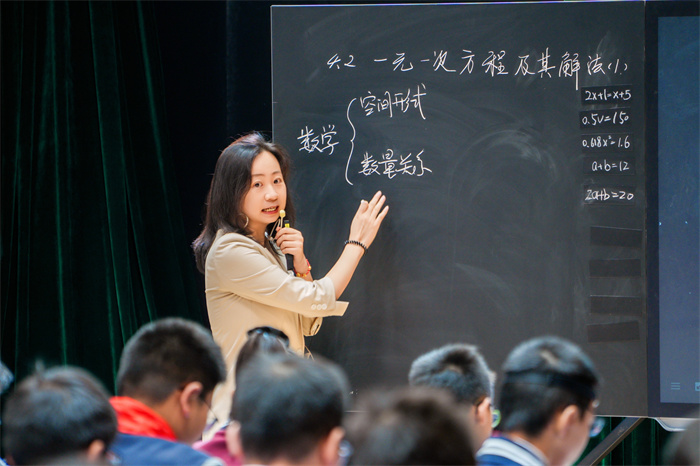 4.2 一元一次方程及其解法(1)
数学
空间形式
数量关系
2x+1=x+5
0.5v=150
0.618x²=1.6
a+b=12
2a+b=20